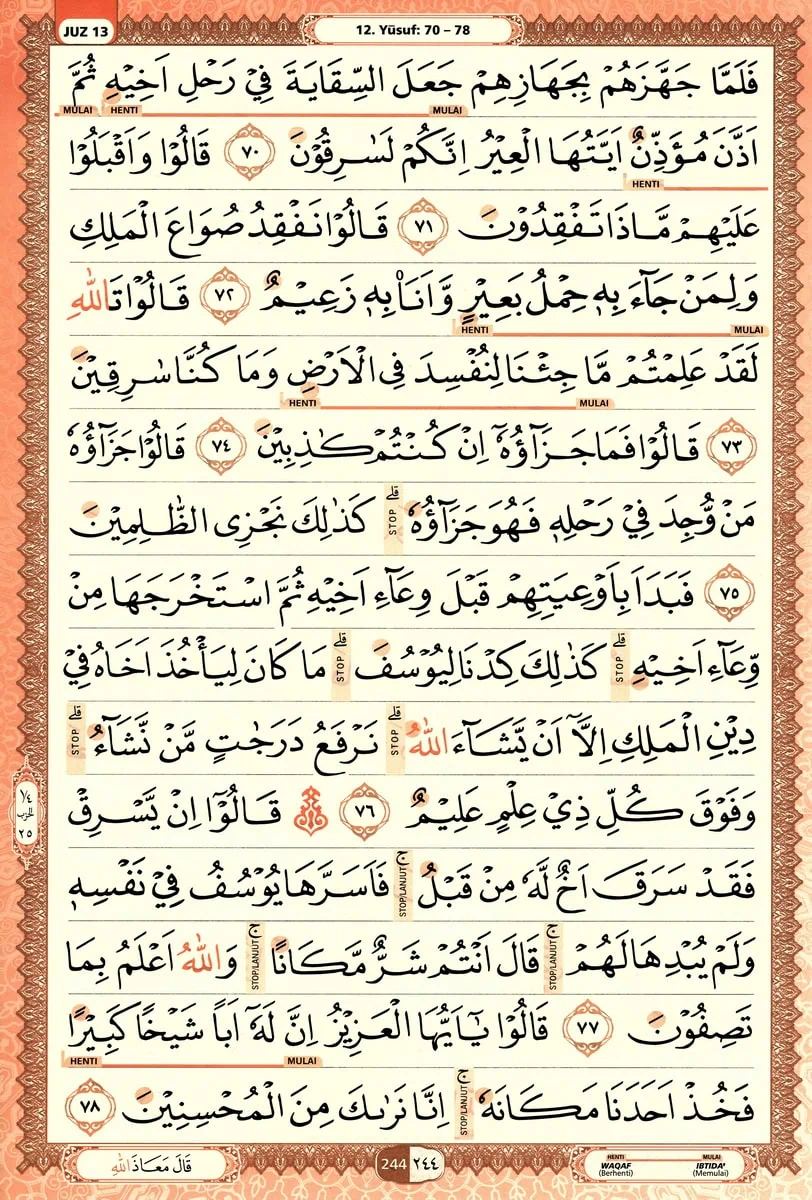 JUZ 13
12. Yūsuf: 70 – 78
فَلَمَّا جَهَّزَهُمْ بِجَهَازِهِمْ جَعَلَ السِّقَايَةَ فِيْ رَحْلِ اَخِيْهِ ثُمَّ
MULAI HENTI MULAI
اَذَّنَ مُؤَذِّنٌ اَيَّتُهَا الْعِيْرُ اِنَّكُمْ لَسٰرِقُوْنَ ٧٠ قَالُوْا وَاَقْبَلُوْا
HENTI
عَلَيْهِمْ مَّاذَا تَفْقِدُوْنَ ٧١ قَالُوْا نَفْقِدُ صُوَاعَ الْمَلِكِ
وَلِمَنْ جَاۤءَ بِهٖ حِمْلُ بَعِيْرٍ وَّاَنَا۠ بِهٖ زَعِيْمٌ ٧٢ قَالُوْا تَاللّٰهِ
HENTI MULAI
لَقَدْ عَلِمْتُمْ مَّا جِئْنَا لِنُفْسِدَ فِى الْاَرْضِ وَمَا كُنَّا سٰرِقِيْنَ
HENTI MULAI
٧٣ قَالُوْا فَمَا جَزَاۤؤُهٗٓ اِنْ كُنْتُمْ كٰذِبِيْنَ ٧٤ قَالُوْا جَزَاۤؤُهٗ
مَنْ وُّجِدَ فِيْ رَحْلِهٖ فَهُوَ جَزَاۤؤُهٗ ۗ STOP كَذٰلِكَ نَجْزِى الظّٰلِمِيْنَ
٧٥ فَبَدَاَ بِاَوْعِيَتِهِمْ قَبْلَ وِعَاۤءِ اَخِيْهِ ثُمَّ اسْتَخْرَجَهَا مِنْ
وِّعَاۤءِ اَخِيْهِ ۗ STOP كَذٰلِكَ كِدْنَا لِيُوْسُفَ ۗ STOP مَا كَانَ لِيَأْخُذَ اَخَاهُ فِيْ
دِيْنِ الْمَلِكِ اِلَّآ اَنْ يَّشَاۤءَ اللّٰهُ ۗ STOP نَرْفَعُ دَرَجٰتٍ مَّنْ نَّشَاۤءُ ۗ STOP
وَفَوْقَ كُلِّ ذِيْ عِلْمٍ عَلِيْمٌ ٧٦ قَالُوْٓا اِنْ يَّسْرِقْ
١/٤ الحزب ٢٥
فَقَدْ سَرَقَ اَخٌ لَّهٗ مِنْ قَبْلُ ۚ STOP/LANJUT فَاَسَرَّهَا يُوْسُفُ فِيْ نَفْسِهٖ
وَلَمْ يُبْدِهَا لَهُمْ ۚ STOP/LANJUT قَالَ اَنْتُمْ شَرٌّ مَّكَانًا ۚ STOP/LANJUT وَاللّٰهُ اَعْلَمُ بِمَا
تَصِفُوْنَ ٧٧ قَالُوْا يٰٓاَيُّهَا الْعَزِيْزُ اِنَّ لَهٗٓ اَبًا شَيْخًا كَبِيْرًا
HENTI MULAI
فَخُذْ اَحَدَنَا مَكَانَهٗ ۚ STOP/LANJUT اِنَّا نَرٰىكَ مِنَ الْمُحْسِنِيْنَ ٧٨
قَالَ مَعَاذَ اللّٰهِ
244 ٢٤٤
HENTI MULAI
WAQAF IBTIDA'
(Berhenti) (Memulai)